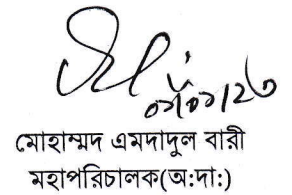 ০৭/০৭/২৩
মোহাম্মদ এমদাদুল বারী
মহাপরিচালক(অ:দা:)